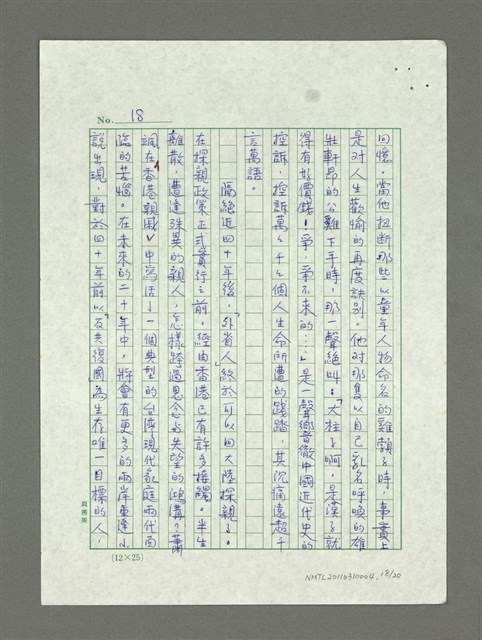 No. 18
回憶。當他扭斷那些以童年人物命名的雞頸子時，事實上
是對人生歡愉的再度訣別。他對那隻以自己乳名呼喚的雄
壯軒昂的公雞下手時，那一聲絕叫：「大柱子啊，是漢子就
得有好價錢！爭，爭不來的…」是一聲響徹中國近代史的
控訴，控訴萬萬千千個人生命所遭的踐踏，其沉痛遠超千
言萬語。
隔絕近四十年後，「外省人」終於可以回大陸探親了。
在探親政策正式實行之前，經由香港已有許多接觸。半生
離散，遭逢殊異的親人，怎樣跨過思念與失望的鴻溝？蕭
颯在「香港親戚」中寫活了一個典型的台灣現代家庭兩代面
臨的苦惱。在未來的二十年中，將會有更多的兩岸重逢小
說出現，對於四十年前以「反共復國」為生存唯一目標的人，
(12×25)
NMTL20110310004 18/20